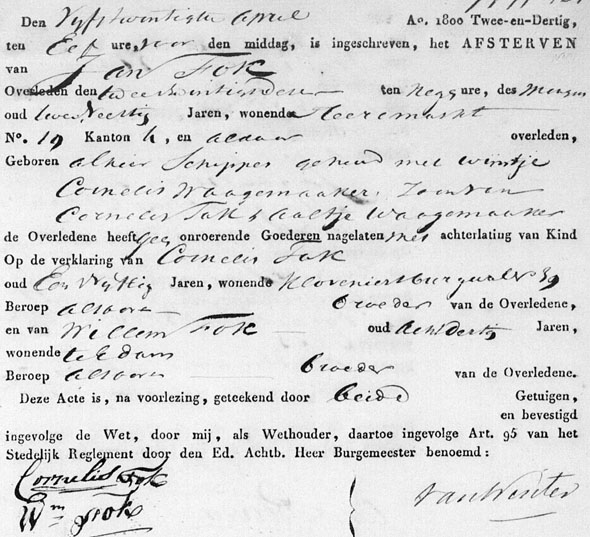 Den Vijfentwintigste April Ao. 1800 Twee-en-Dertig,
ten Elf ure, voor den middag, is ingeschreven, het AFSTERVEN
van Jan Fok
Overleden den tweeentwintigsten ten Negen ure, des Morgens
oud twee Veertig Jaren, wonende
No. 19 Kanton 4, en aldaar overleden,
Geboren alhier Schipper gehuud met Wijntje
Cornelis Waagemaaker. Zoon van
Cornelis Fok & Aaltje Waagemaaker
de Overledene heeft geen onroerende Goederen nagelaten met achterlating van Kind
Op de verklaring van Cornelis Fok
oud Een Vijftig Jaren, wonende Kloveniersburgwal 39
Beroep alsvoren broeder van de Overledene,
en van Willem Fok oud acht Dertig Jaren,
wonende te Edam
Beroep alsvoren broeder van de Overledene.
Deze Acte is, na voorlezing, geteekend door beide Getuigen,
en bevestigd
ingevolge de Wet, door mij, als Wethouder, daartoe ingevolge Art. 95 van het
Stedelijk Reglement door den Ed. Achtb. Heer Burgemeester benoemd:
Cornelis Fok
Wm Fok
van Winter